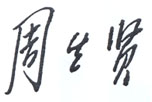 周生贤